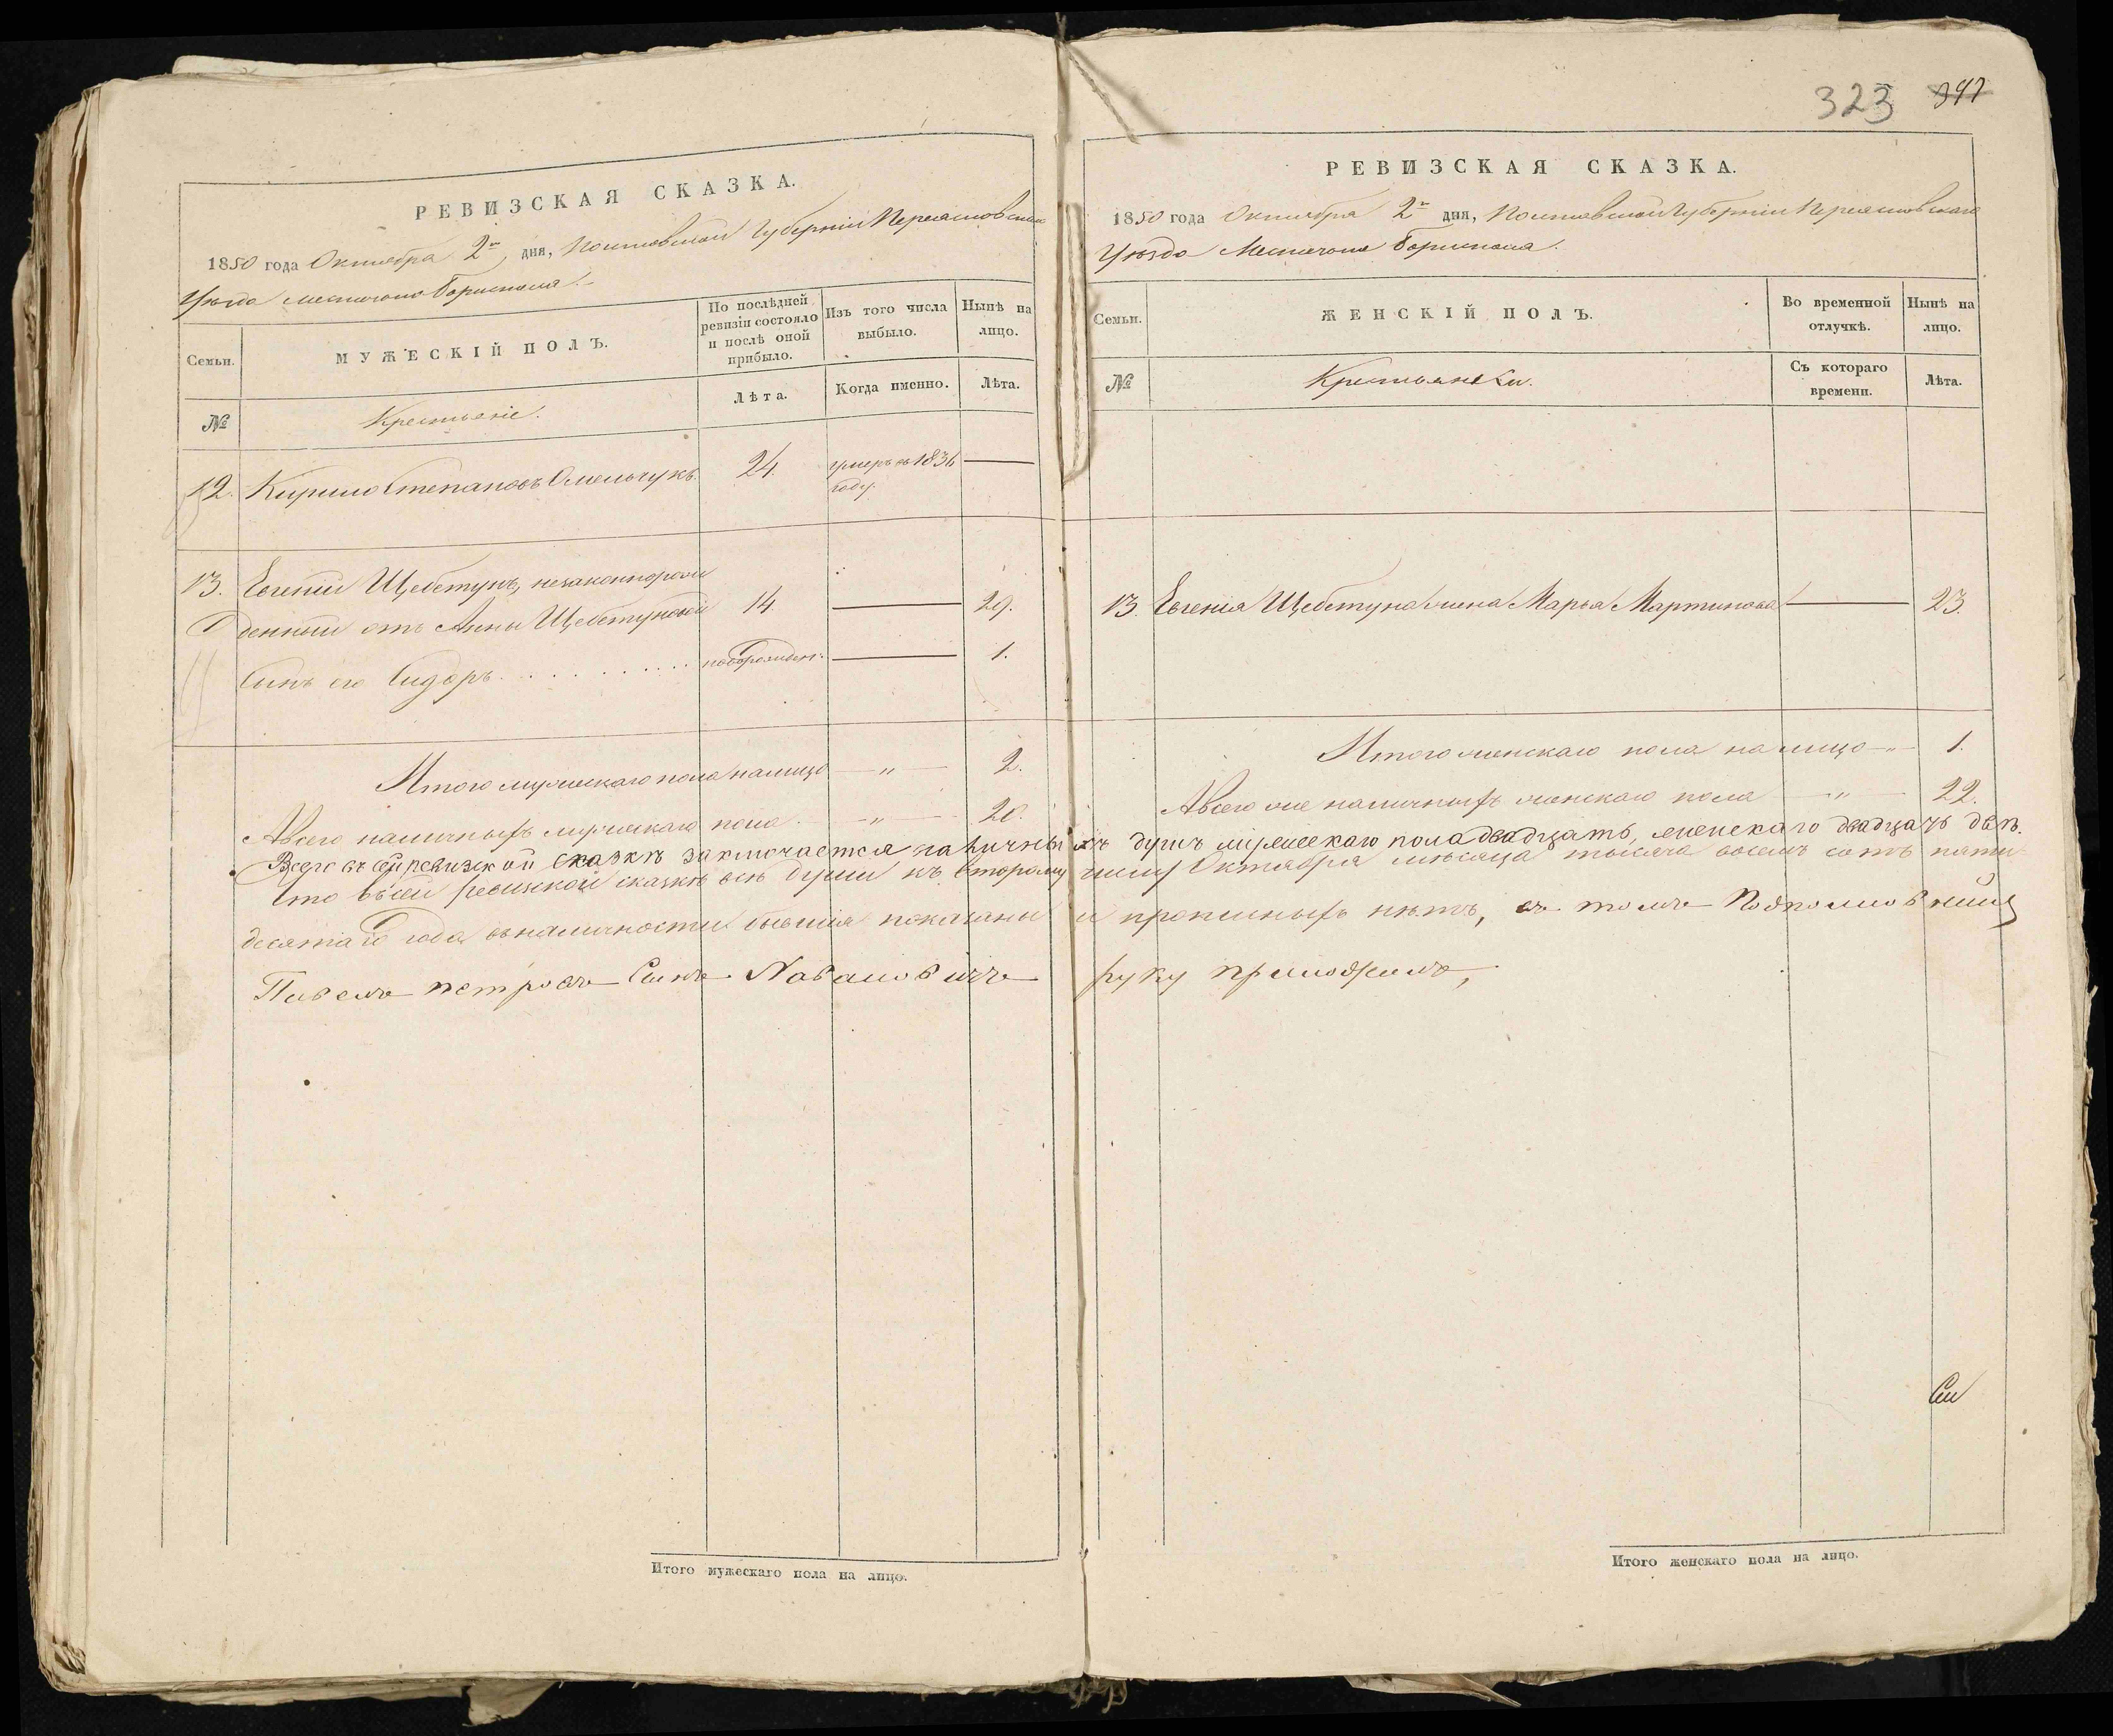 323 347
РЕВИЗСКАЯ СКАЗКА.
1850 года Октября 2го дня, Полтавской Губерніи Переяславскаго
Уѣзда местечка Борисполя.
Семьи.
МУЖЕСКІЙ ПОЛЪ.
По послѣдней ревизіи состояло и послѣ оной прибыло.
Изъ того числа выбыло.
Нынѣ на лицо.
№
Крестьяніе.
Лѣта.
Когда именно.
Лѣта.
12. Кирило Степановъ Омельчукъ 24. умеръ въ 1836 —
году.
13. Евгеній Щебетунъ, незаконнорож
денный отъ Анны Щебетуновой 14. — 29.
Сынъ его Сидоръ . . . . . . . . . новорожден: — 1.
Итого мужескаго пола налицо — „ — 2.
А всего наличныхъ мужескаго пола — „ — 20.
РЕВИЗСКАЯ СКАЗКА.
1850 года Октября 2го дня, Полтавской Губерніи Переяславскаго
Уѣзда Местечка Борисполя.
Семьи.
ЖЕНСКІЙ ПОЛЪ.
Во временной отлучкѣ.
Нынѣ на лицо.
№
Крестьянки.
Съ котораго времени.
Лѣта.
13. Евгенія Щебетуна жена Марья Мартинова — 23.
Итого женскаго пола налицо — „ — 1.
А всего же наличныхъ женскаго пола — „ — 22.
Всего въ сей ревизской сказкѣ заключается наличныхъ душъ мужескаго пола двадцать, женскаго двадцать двѣ.
Что въ сей ревизской сказкѣ всѣ души къ второму числу Октября мѣсяца тысяча восемъ сотъ пяти
десятаго года въ наличности бывшія показаны и прописныхъ нѣтъ, въ томъ Подполковницы
Павелъ Петровъ Сынъ руку приложилъ,
Си
Итого мужескаго пола на лицо.
Итого женскаго пола на лицо.